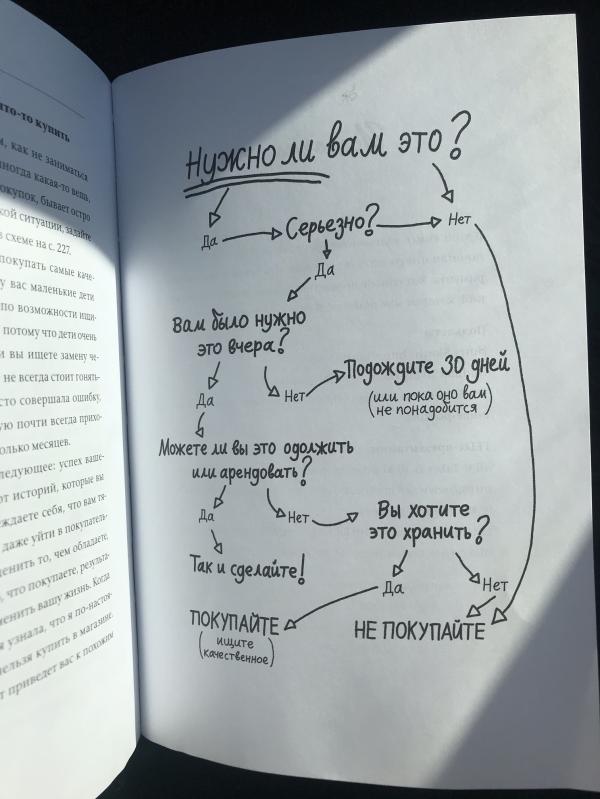 что-то купить
м, как не заниматься
иногда какая-то вещь,
окупок, бывает остро
кой ситуации, задайте
в схеме на с. 227.
покупать самые каче-
у вас маленькие дети
по возможности ищи-
потому что дети очень
и вы ищете замену че-
не всегда стоит гонять-
сто совершала ошибку,
ую почти всегда прихо-
олько месяцев.
ледующее: успех ваше-
от историй, которые вы
ждаете себя, что вам тя-
даже уйти в покупатель-
енить то, чем обладаете,
о, что покупаете, результа-
менить вашу жизнь. Когда
я узнала, что я по-настоя-
нельзя купить в магазине.
т приведет вас к похожим
Нужно ли вам это?
Да
Серьезно?
Нет
Да
Вам было нужно
это вчера?
Да
Нет
Подождите 30 дней
(или пока оно вам
не понадобится)
Можете ли вы это одолжить
или арендовать?
Да
Нет
Вы хотите
это хранить?
Так и сделайте!
Да
Нет
ПОКУПАЙТЕ
(ищите
качественное)
НЕ ПОКУПАЙТЕ